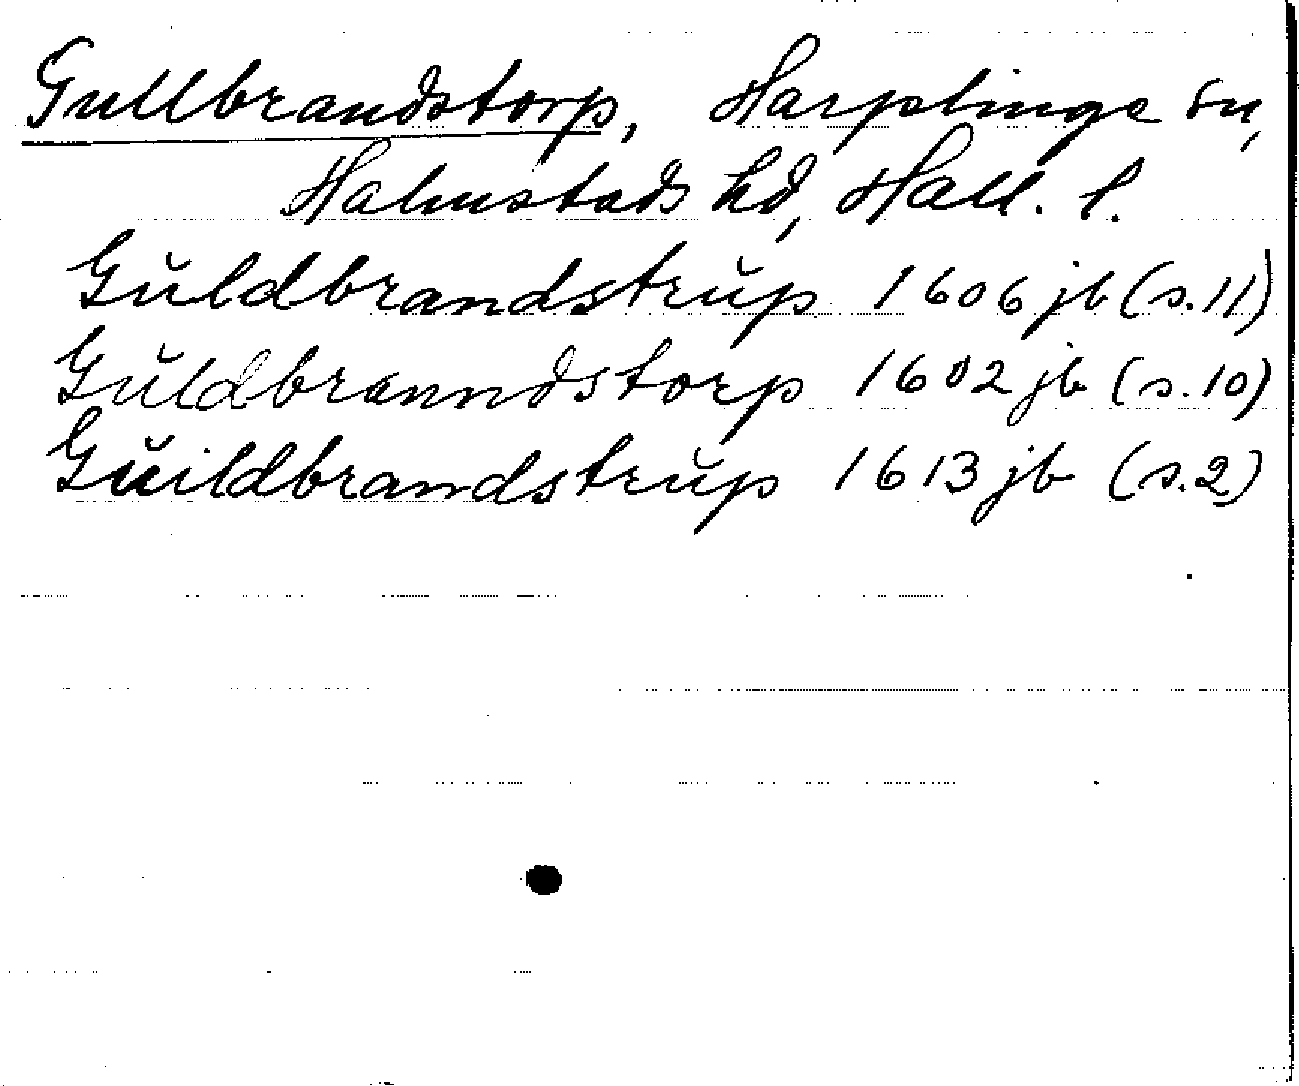 Gullbrandstorp, Harplinge sn,
Halmstads hd, Hall. l.
Gŭldbrandstrŭp 1606 jb (s. 11)
Gŭldbranndstorp 1602 jb (s. 10)
Gŭildbrandstrŭp 1613 jb (s. 2)